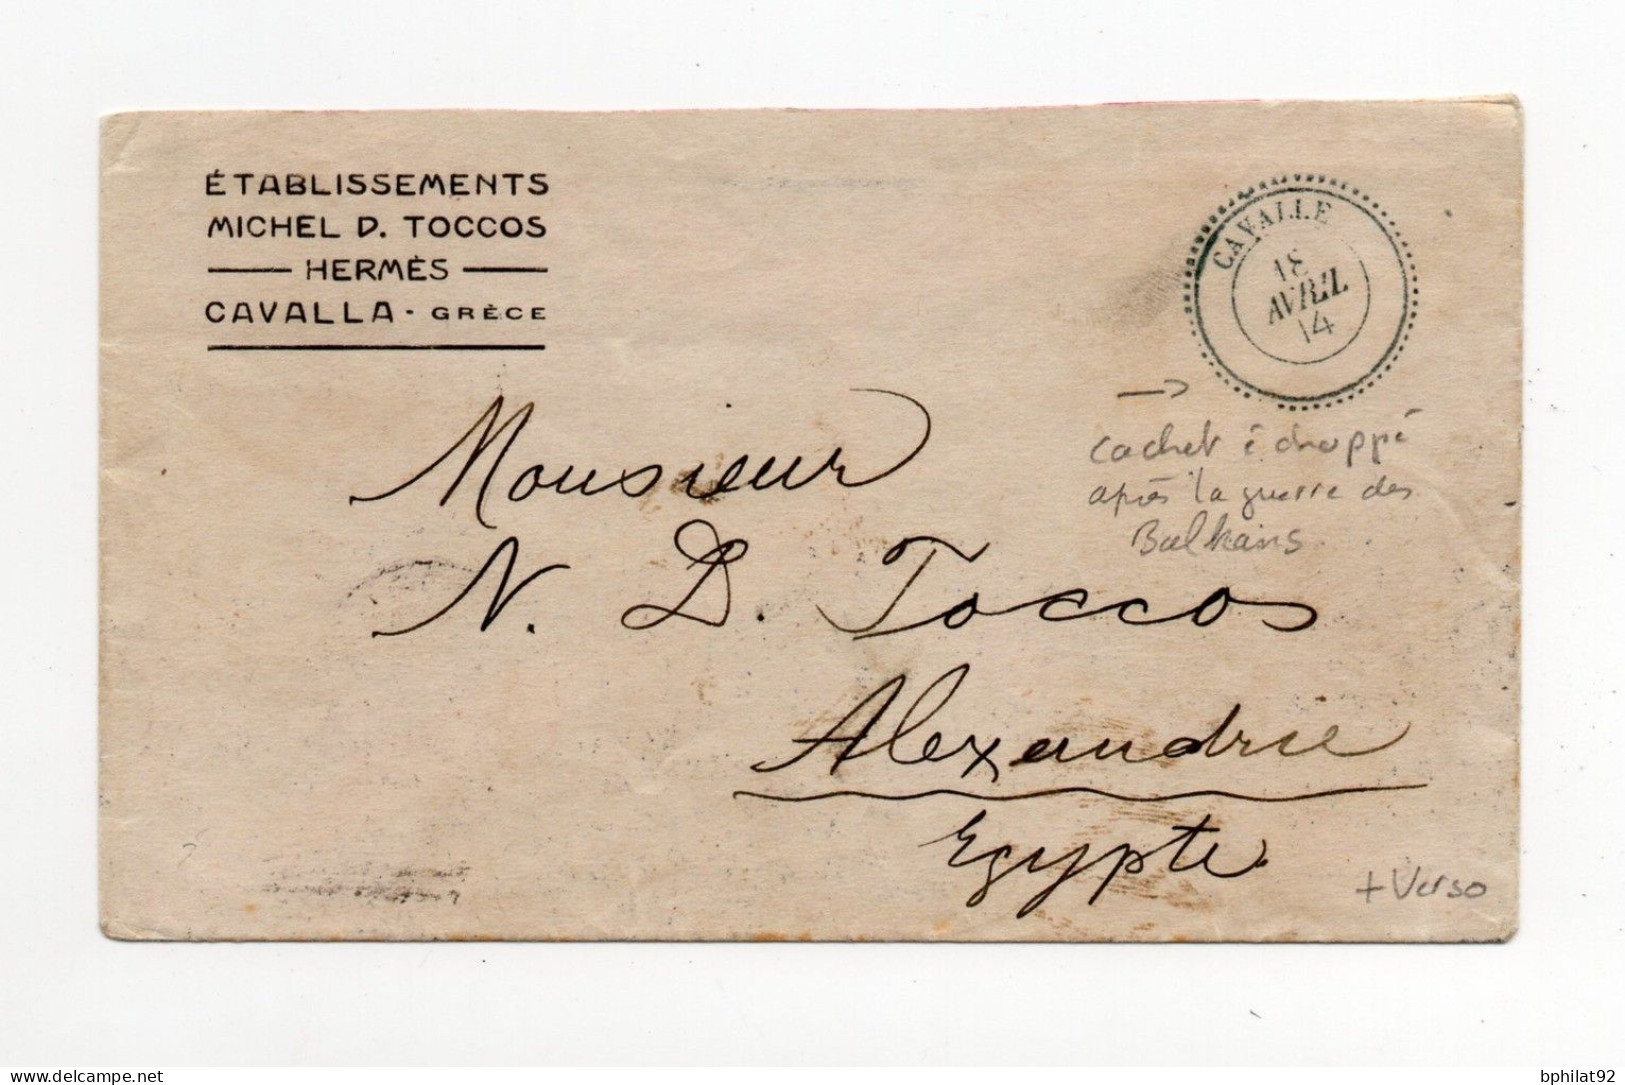 ÉTABLISSEMENTS
MICHEL D. TOCCOS
HERMÈS
CAVALLA - GRÈCE
CAVALLE
18
AVRIL
14
cachet échappé
après la guerre des
Balkans
Monsieur
N. D. Toccos
Alexandrie
Egypte
+ Verso
DELCAMPE.NET
bphilat92